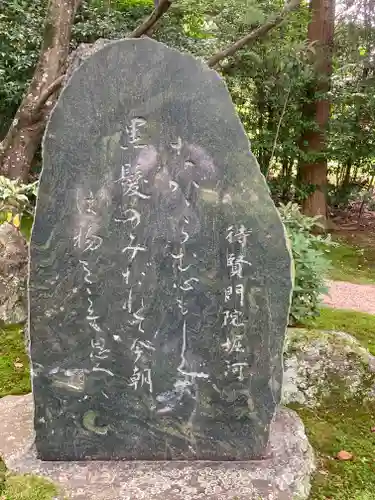 待賢門院堀河
ながからむ心もしらず
黒髪のみだれて今朝
は物をこそ思へ